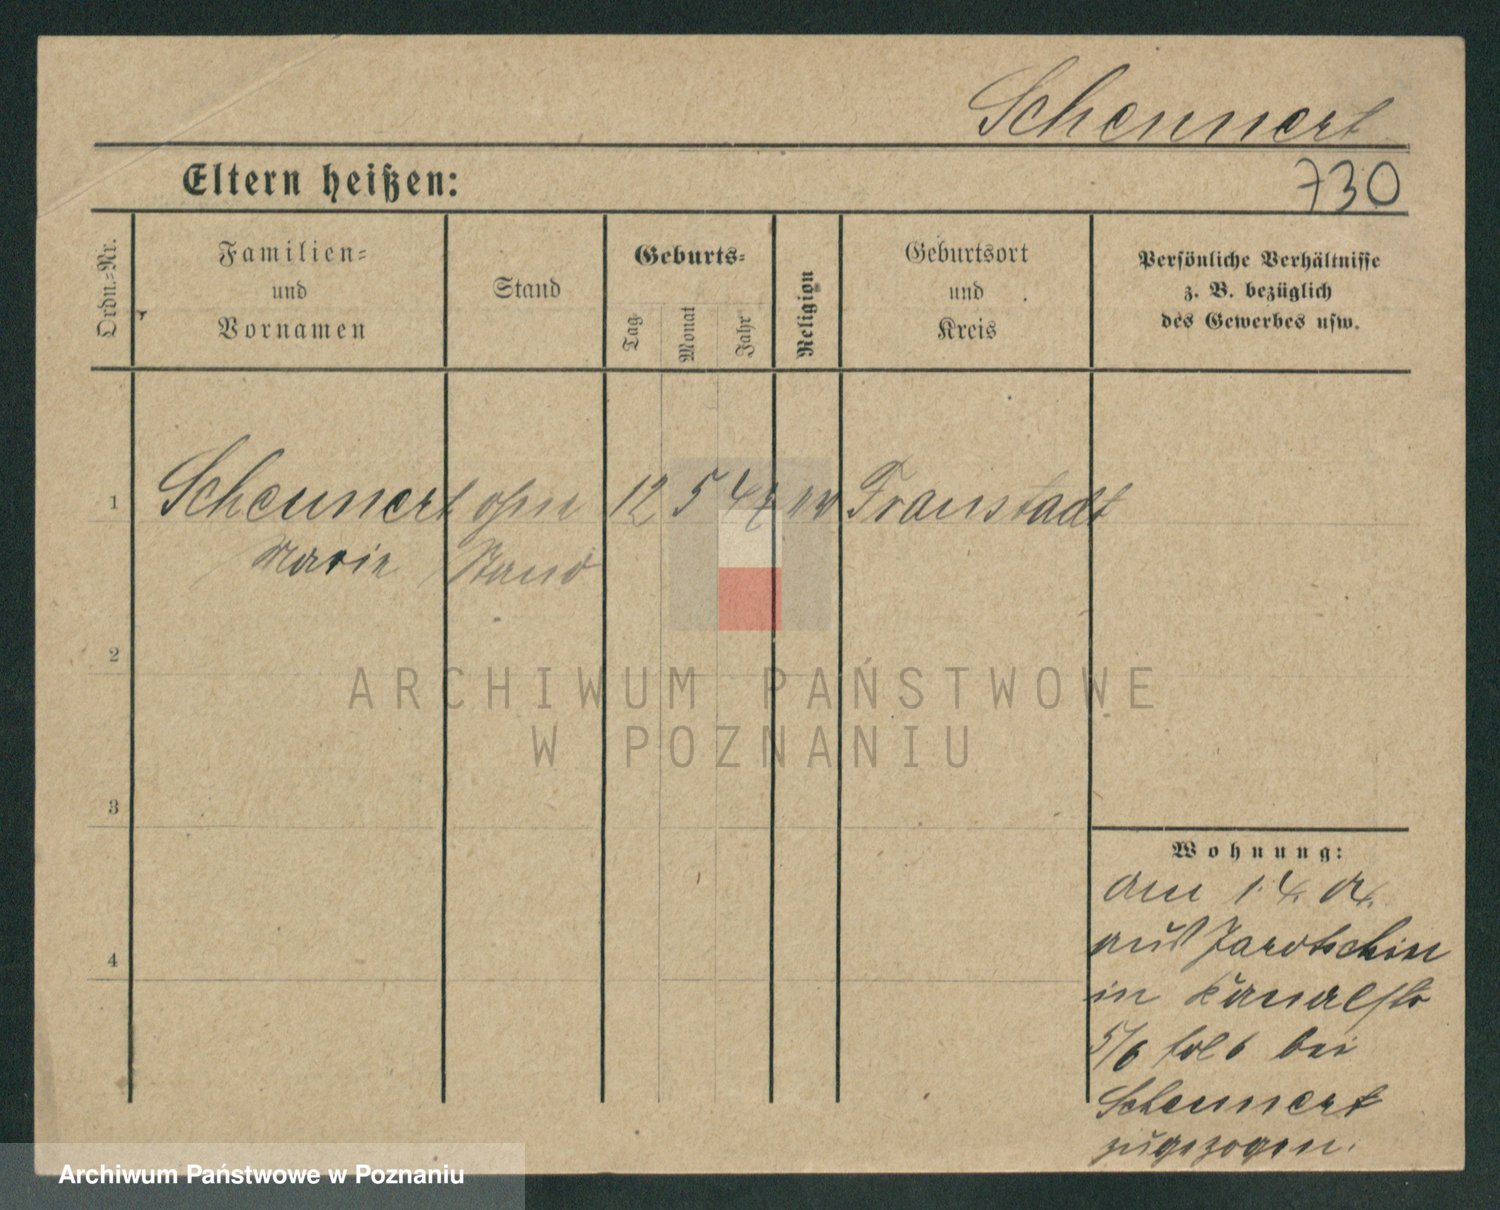 Scheunert
Eltern heißen:
730
Ordn.-Nr.
Familien-
und
Vornamen
Stand
Geburts-
Tag
Monat
Jahr
Religion
Geburtsort
und
Kreis
Persönliche Verhältnisse
z. B. bezüglich
des Gewerbes usw.
1 Scheunert ohne 12 5 ev Fraustadt
Marie Stand
2
ARCHIWUM PAŃSTWOWE
W POZNANIU
3
Wohnung:
am 1.4. 04.
aus Jarotschin
in Kanalstr
5/6 bei
Scheunert
zugezogen.
4
Archiwum Państwowe w Poznaniu